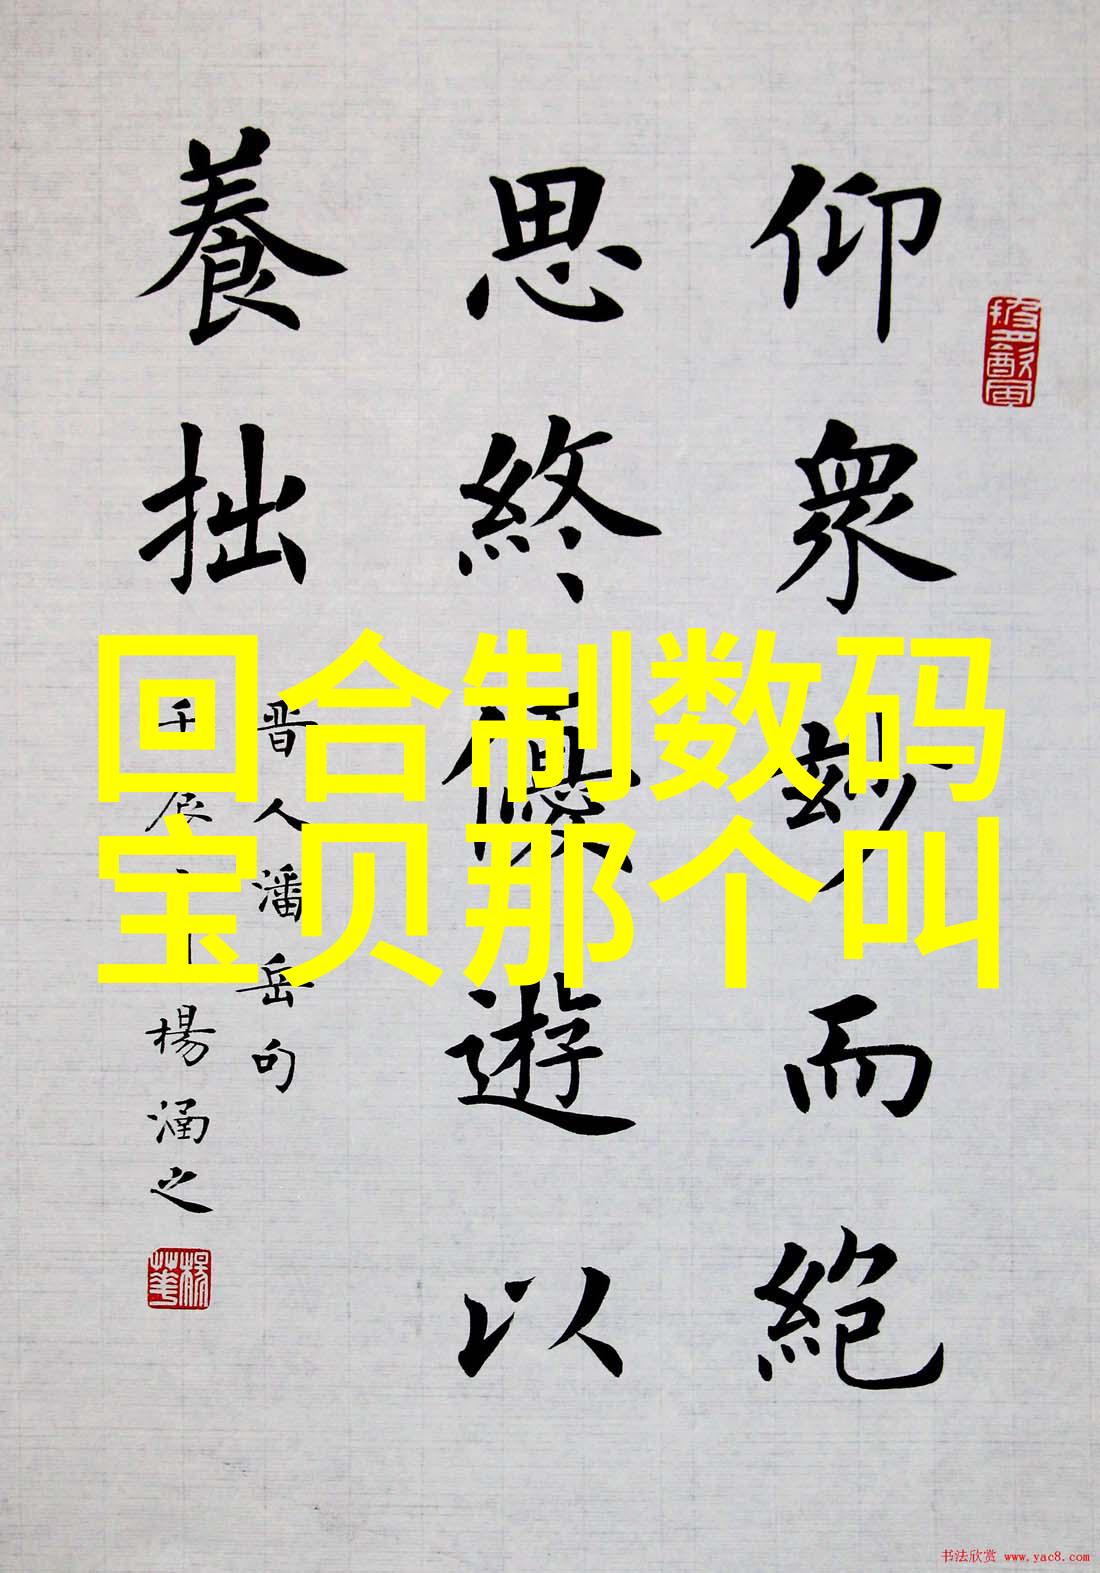 仰衆妙而絶
思終優遊以
養拙
晋人潘岳句
楊涵之
回合制数码
宝贝那个叫
书法欣赏 www.yac8.com